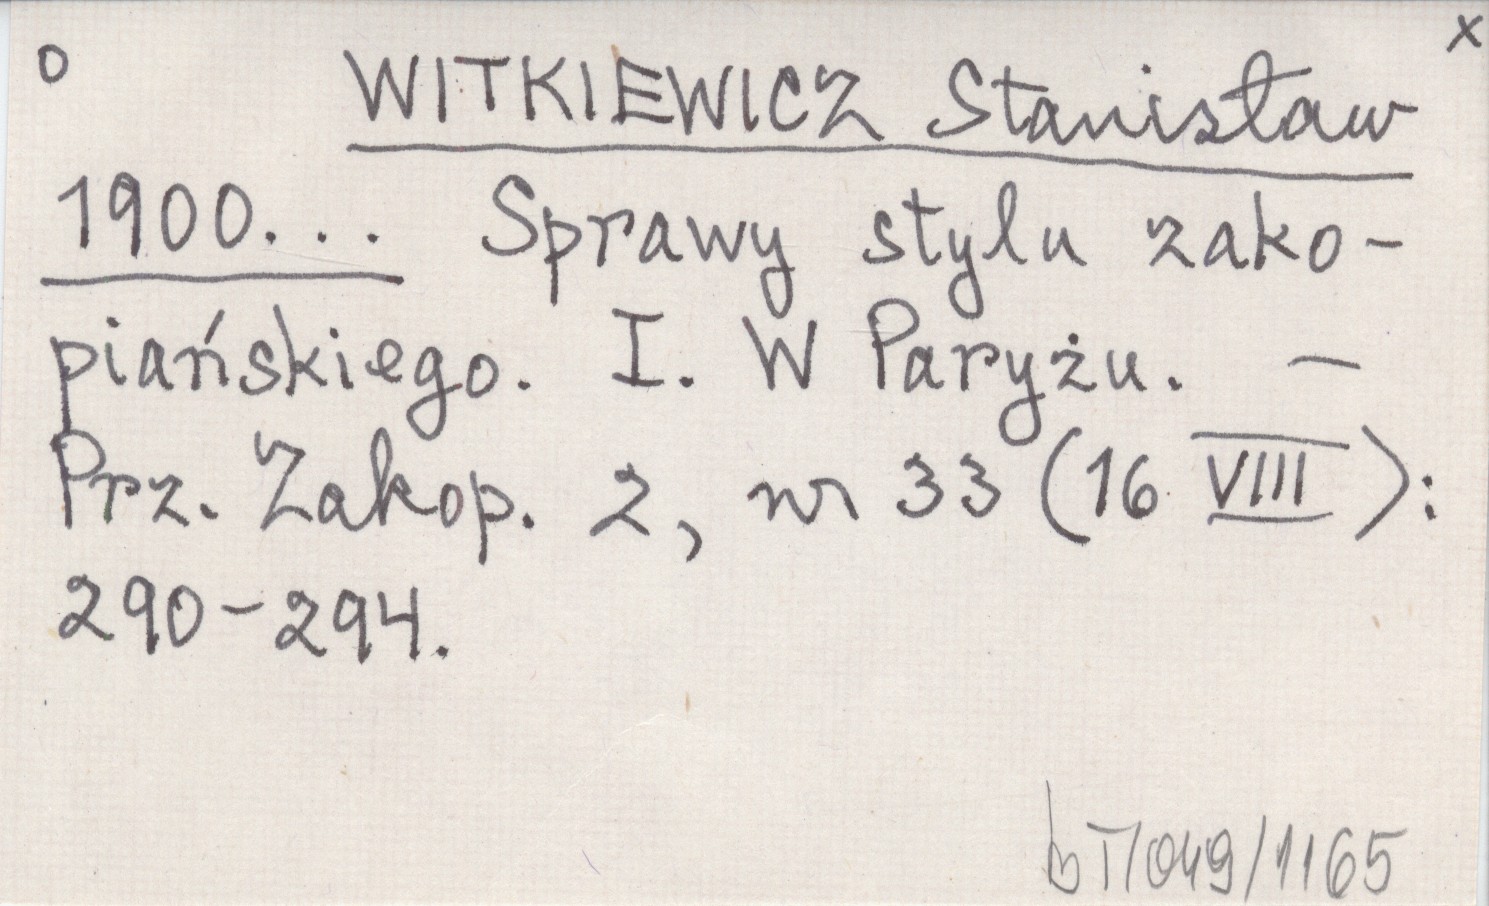 o x
WITKIEWICZ Stanisław
1900... Sprawy stylu zako-
piańskiego. I. W Paryżu. –
Prz. Zakop. 2, nr 33 (16 VIII):
290-294.
bT/049/1165